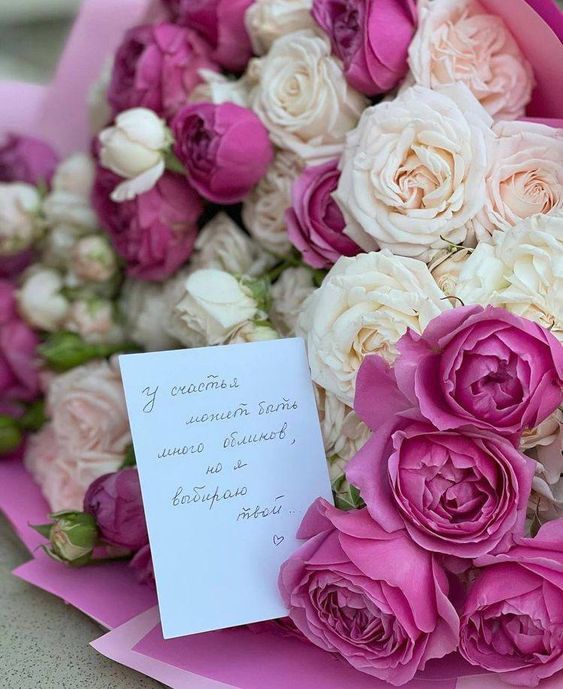 У счастья
может быть
много обликов,
но я
выбираю
твой...